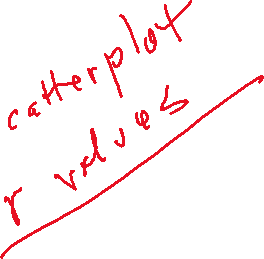 catterplot
r values